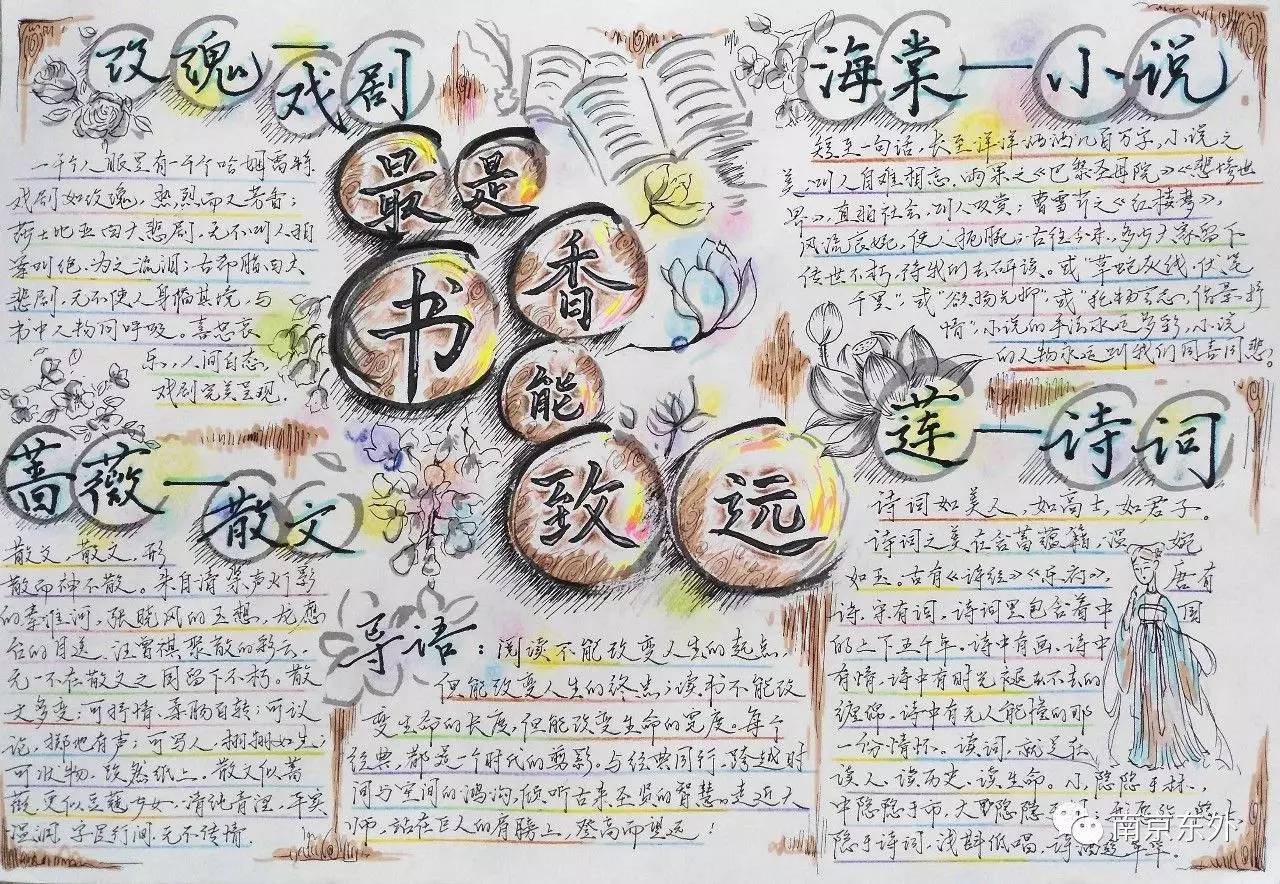 玫瑰—戏剧
一千个人眼里有一千个哈姆雷特.
戏剧如玫瑰，热烈而又芳香；
莎士比亚四大悲剧，无不叫人拍
案叫绝，为之流泪；古希腊四大
悲剧，无不使人身临其境，与
书中人物同呼吸。喜怒哀
乐，人间百态，
戏剧完美呈现.
最是书香能致远
海棠—小说
短至一句话，长至洋洋洒洒几百万字，小说之
美，叫人自难相忘，雨果之《巴黎圣母院》《悲惨世
界》，直指社会，叫人叹赏；曹雪芹之《红楼梦》，
风流，使人扼腕；古往今来，多少大家留下
传世不朽，待我们去研读。或"草蛇灰线，伏笔
千里"，或"欲扬先抑"，或"托物言志，借景抒
情"，小说的手法永远多彩，小说
的人物永远叫我们同喜同悲。
蔷薇—散文
散文，散文，形
散而神不散。朱自清桨声灯影
的秦淮河，张晓风的玉想，龙应
台的目送，汪曾祺聚散的彩云，
无一不在散文之国留下不朽。散
文多变：可抒情，柔肠百转；可议
论，掷地有声；可写人，栩栩如生；
可状物，跃然纸上。散文似蔷
薇，更似豆蔻少女，清纯青涩，平实
温润，字里行间，无不传情.
导语：阅读不能改变人生的起点，
但能改变人生的终点；读书不能改
变生命的长度，但能改变生命的宽度。每个
经典，都是一个时代的剪影。与经典同行，跨越时
间与空间的鸿沟，倾听古来圣贤的智慧。走近大
师，站在巨人的肩膀上，登高而望远！
莲—诗词
诗词如美人，如高士，如君子。
诗词之美在含蓄蕴藉，温婉
如玉。古有《诗经》《乐府》，唐有
诗，宋有词，诗词里包含着中国
的上下五千年。诗中有画，诗中
有情，诗中有时光褪不去的
缠绵，诗中有无人能懂的那
一份情怀。读词，就是在
读人，读历史，读生命。小隐隐于林，
中隐隐于市，大隐隐
隐于诗词，浅斟低唱，诗酒趁年华。
南京东外